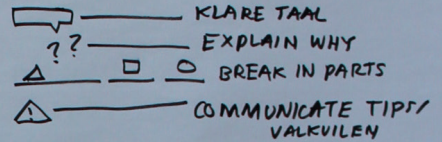 KLARE TAAL
?? EXPLAIN WHY
BREAK IN PARTS
! COMMUNICATE TIPS/
VALKUILEN